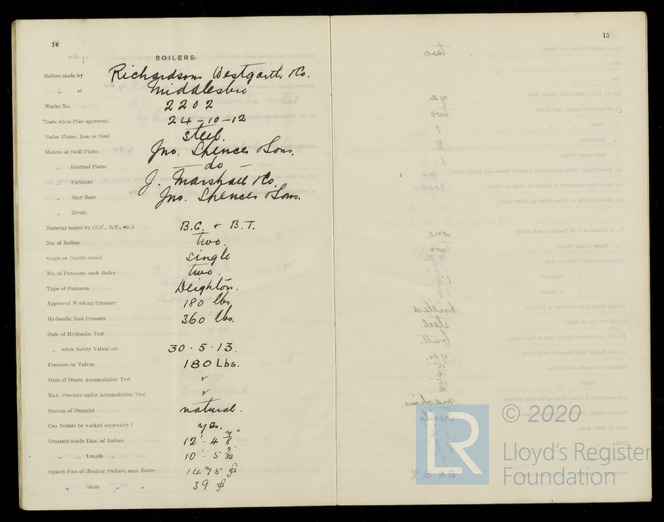 14
BOILERS.
Boilers made by Richardsons Westgarth & Co.
„ at Middlesbro
Works No. 2202
*Date when Plan approved 24-10-12
Boiler Plates, Iron or Steel Steel.
Makers of Shell Plates Jno. Spencer & Sons.
„ Internal Plates — do —
„ Furnaces J. Marshall & Co.
„ Stay Bars Jno. Spencer & Sons.
„ Rivets
Material tested by (B.C., B.T., etc.) B.C. + B.T.
No. of Boilers two.
Single or Double-ended single
No. of Furnaces, each Boiler two.
Type of Furnaces Deighton.
Approved Working Pressure 180 lbs
Hydraulic Test Pressure 360 lbs.
Date of Hydraulic Test
„ when Safety Valves set 30-5-13.
Pressure on Valves 180 Lbs.
Date of Steam Accumulation Test ✓
Max. Pressure under Accumulation Test ✓
System of Draught natural.
Can Boilers be worked separately? yes.
Greatest Inside Diar. of Boilers 12-4 7/8"
„ „ Length 10-5
Square Feet of Heating Surface, each Boiler 1475
„ Grate „ 39
15
LR
© 2020
Lloyd's Register
Foundation